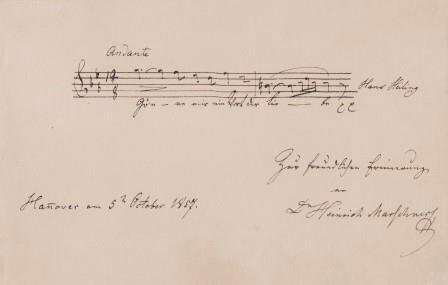 Andante
Gön - ne mir ein Wort der Lie - be
Hans Heiling
Zur freundlichen Erinnerung
an
Dr Heinrich Marschner
Hañover am 5ᵗ October 1857.